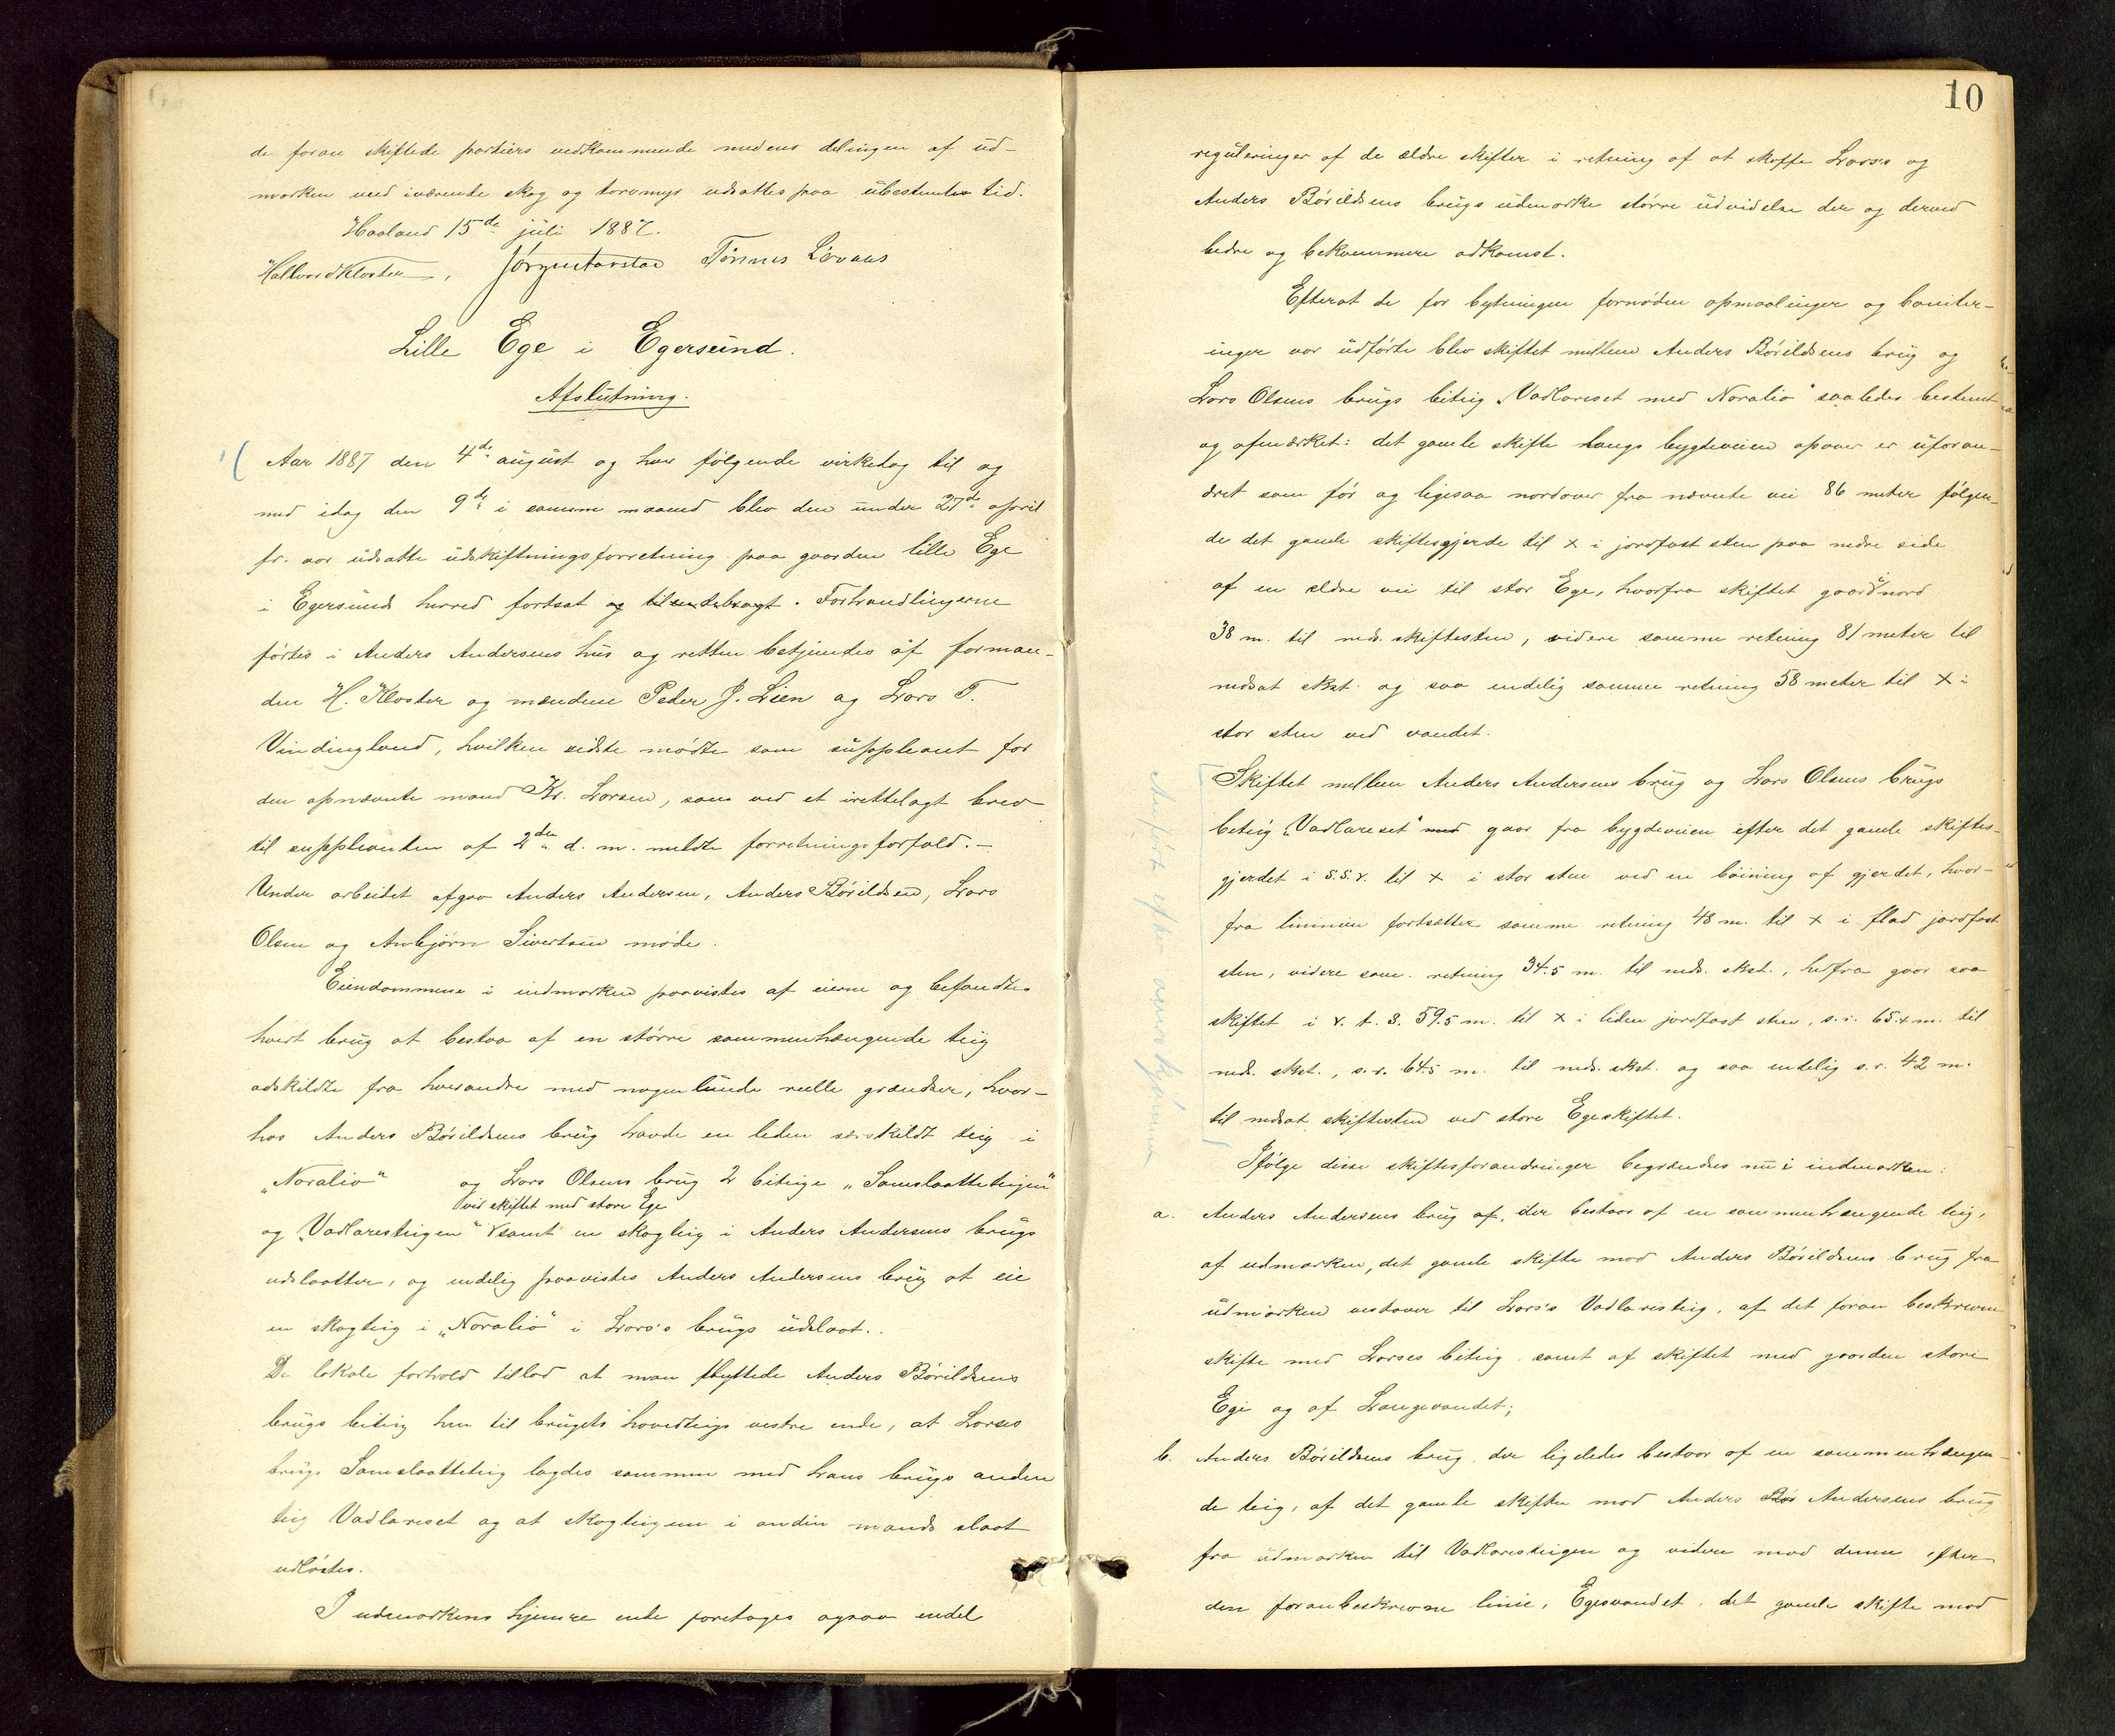 de foran skiftede partiers vedkommende medens delingen af ud-
marken med iværende skog og torvmyr udsattes paa ubestemt tid.
Haaland 15de juli 1887.
Hallvard Kloster, Tønnes Løvaas
Lille Ege i Egersund.
Afslutning.
Aar 1887 den 4de august og hver følgende virkedag til og
med idag den 9de i samme maaned blev den under 27de april
fr. aar udsatte udskiftningsforretning paa gaarden lille Ege
i Egersunds herred fortsat og tilendebragt. Forhandlingerne
førtes i Anders Andersens hus og retten betjentes af forman-
den H. Kloster og mændene Peder J. Lien og Lars T.
Vindingland, hvilken sidste mødte som suppleant for
den opnævnte mand Kr. Larsen, som ved et irettelagt brev
til suppleanten af 2den d. m. meldte forretningsforfald.-
Under arbeidet afgav Anders Andersen, Anders Børildsen, Lars
Olsen og Anbjørn Sivertsen møde.
Eiendommene i indmarken paavistes af eierne og befandtes
hvert brug at bestaa af en større sammenhængende teig
adskildte fra hverandre med nogenlunde reelle grændser, hvor-
hos Anders Børildsens brug havde en liden særskildt teig i
„Noralio" og Lars Olsens brug 2 biteige „Samslaatteteigen"
ved skiftet med store Ege
og „Vadlaresteigen" samt en skogteig i Anders Andersens brugs
udslaatter, og endelig paavistes Anders Andersens brug at eie
en skogteig i „Noralio" i Lars's brugs udslaat.
De lokale forhold tillod at man flyttede Anders Børildsens
brugs biteig hen til brugets hovedteigs vestre ende, at Larses
brugs Samslaatteteig lagdes sammen med hans brugs anden
teig Vadlareset og at skogteigene i anden mands slaat
udløstes.
I udmarkens hjemre ende foretages ogsaa endel
10
reguleringer af de ældre skifter i retning af at skaffe Lars's og
Anders Børildsens brugs udmarke større udvidelse der og derved
bedre og bekvemmere adkomst.
Efterat de for bytningen fornødne opmaalinger og boniter-
inger var udførte blev skiftet mellem Anders Børildsens brug og
Lars Olsens brugs biteig „Vadlareset med Noralio" saaledes bestemt
og afmærket: det gamle skifte langs bygdeveien opover er uforan-
dret som før og ligesaa nordover fra nævnte vei 86 meter følgen-
de det gamle skiftesgjerde til × i jordfast sten paa nedre side
af en ældre vei til stor Ege, hvorfra skiftet gaar i nord
38 m. til neds. skiftesten, videre samme retning 81 meter til
nedsat skst. og saa endelig samme retning 58 meter til × i
stor sten ved vandet.
Skiftet mellem Anders Andersens brug og Lars Olsens brugs
beteig „Vadlareset" med gaar fra bygdeveien efter det gamle skiftes-
gjerdet i S.S.V. til × i stor sten ved en bøining af gjerdet, hvor-
fra linien fortsætter samme retning 48 m. til × i flad jordfast
sten, videre sam. retning 34.5 m. til neds. skst., hvfra gaar saa
skiftet i V. t. S. 59.5 m. til × i liden jordfast sten, s. r. 65.4 m. til
neds. skst., s. r. 64.5 m. til neds. skst. og saa endelig s. r. 42 m.
til nedsat skiftesten ved store Egeskiftet.
Ifølge disse skiftesforandringer begrændses nu i indmarken:
a. Anders Andersens brug af, der bestaar af en sammenhængende teig,
af udmarken, det gamle skifte mod Anders Børildsens brug fra
udmarken vestover til Lars's Vadlaresteig, af det foran beskrevne
skifte med Larses biteig samt af skiftet med gaarden store
Ege og af Langevandet;
b. Anders Børildsens brug, der ligeledes bestaar af en sammenhængen-
de teig, af det gamle skifte mod Anders Bør Andersens brug
fra udmarken til Vadlaresteigen og videre mod denne efter
den foranbeskrevne linie, Egesvandet, det gamle skifte mod